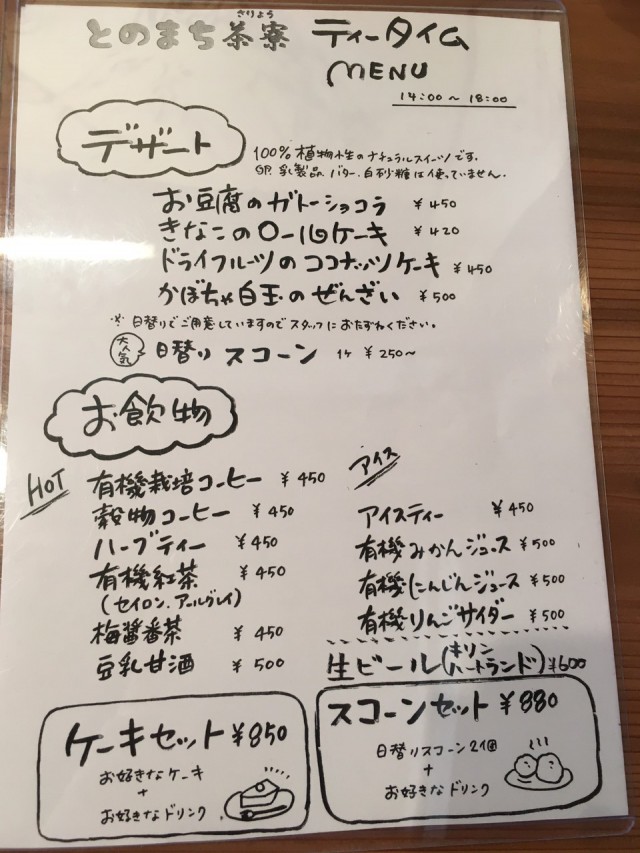 さりょう
とのまち茶寮 ティータイム
MENU
14:00〜18:00
デザート
100%植物性のナチュラルスイーツです。
卵、乳製品、バター、白砂糖は使っていません。
お豆腐のガトーショコラ ¥450
きなこのロールケーキ ¥420
ドライフルーツのココナッツケーキ ¥450
かぼちゃ白玉のぜんざい ¥500
※日替りでご用意していますのでスタッフにおたずねください。
大人気 日替り スコーン 1ケ ¥250〜
お飲物
HOT
有機栽培コーヒー ¥450
穀物コーヒー ¥450
ハーブティー ¥450
有機紅茶 ¥450
(セイロン.アールグレイ)
梅醤番茶 ¥450
豆乳甘酒 ¥500
アイス
アイスティー ¥450
有機みかんジュース ¥500
有機にんじんジュース ¥500
有機りんごサイダー ¥500
生ビール(キリンハートランド) ¥600
ケーキセット ¥850
お好きなケーキ
+
お好きなドリンク
スコーンセット ¥880
日替りスコーン2個
+
お好きなドリンク